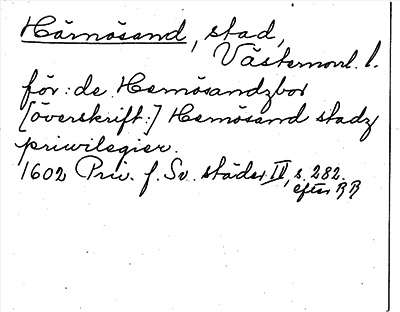 Härnösand, stad,
Västernorrl. l.
för: de Hernösandzbor
[överskrift:] Hernösand stadz
priwilegier.
1602 Priv. f. Sv. städer IV, s. 282.
efter RR